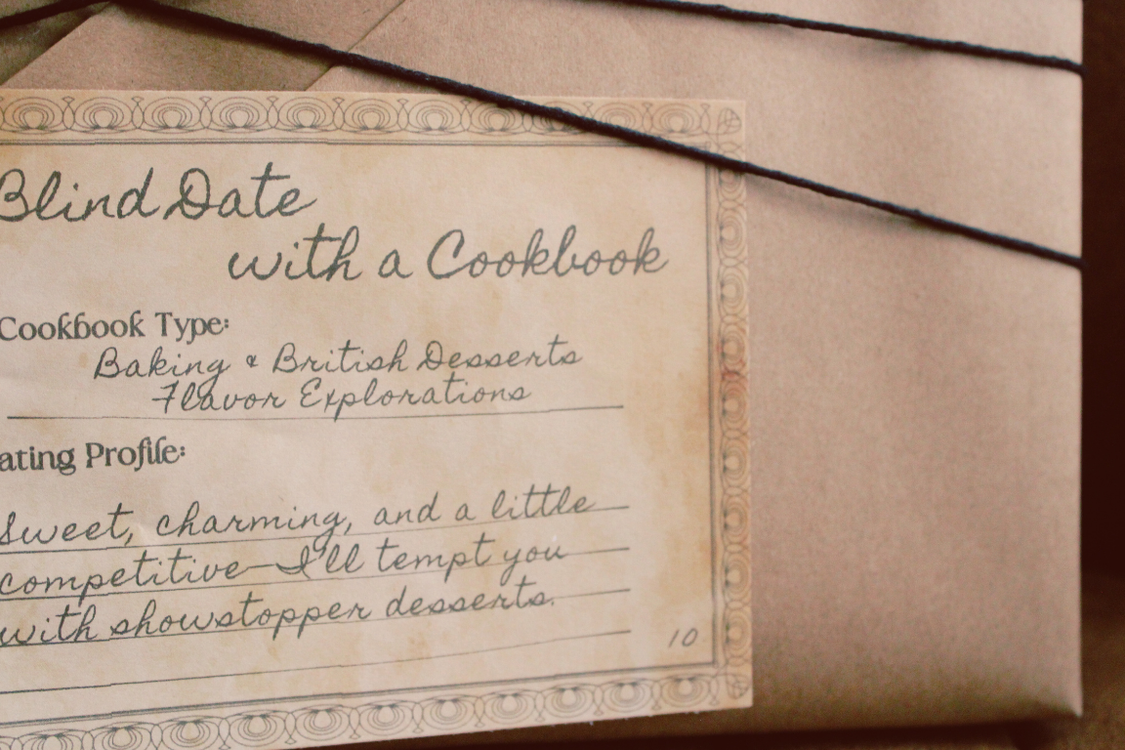 Blind Date
with a Cookbook
Cookbook Type:
Baking & British Desserts
Flavor Explorations
ating Profile:
Sweet, charming, and a little
competitive—I'll tempt you
with showstopper desserts.
10